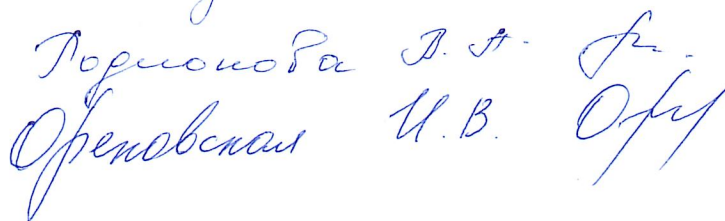 Родионова В. А.
Ореховская И. В.